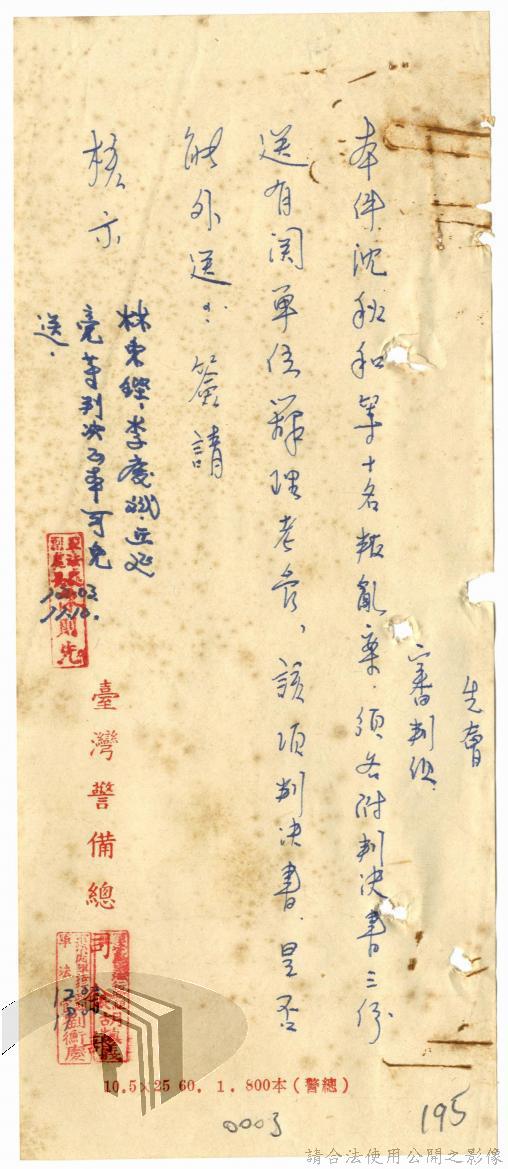 先會
審判組
本件沈秋和等十名叛亂案.須各附判決書三份
送有關單位辦理考管、該項判決書.是否
能外送?簽請
核示
林東鏗、李慶斌、
亮等判決正本可免
送.
1203
1710.
臺灣警備總司令部
10.5×25 60. 1. 800本(警總)
劉衡慶
0003
195
請合法使用公開之影像